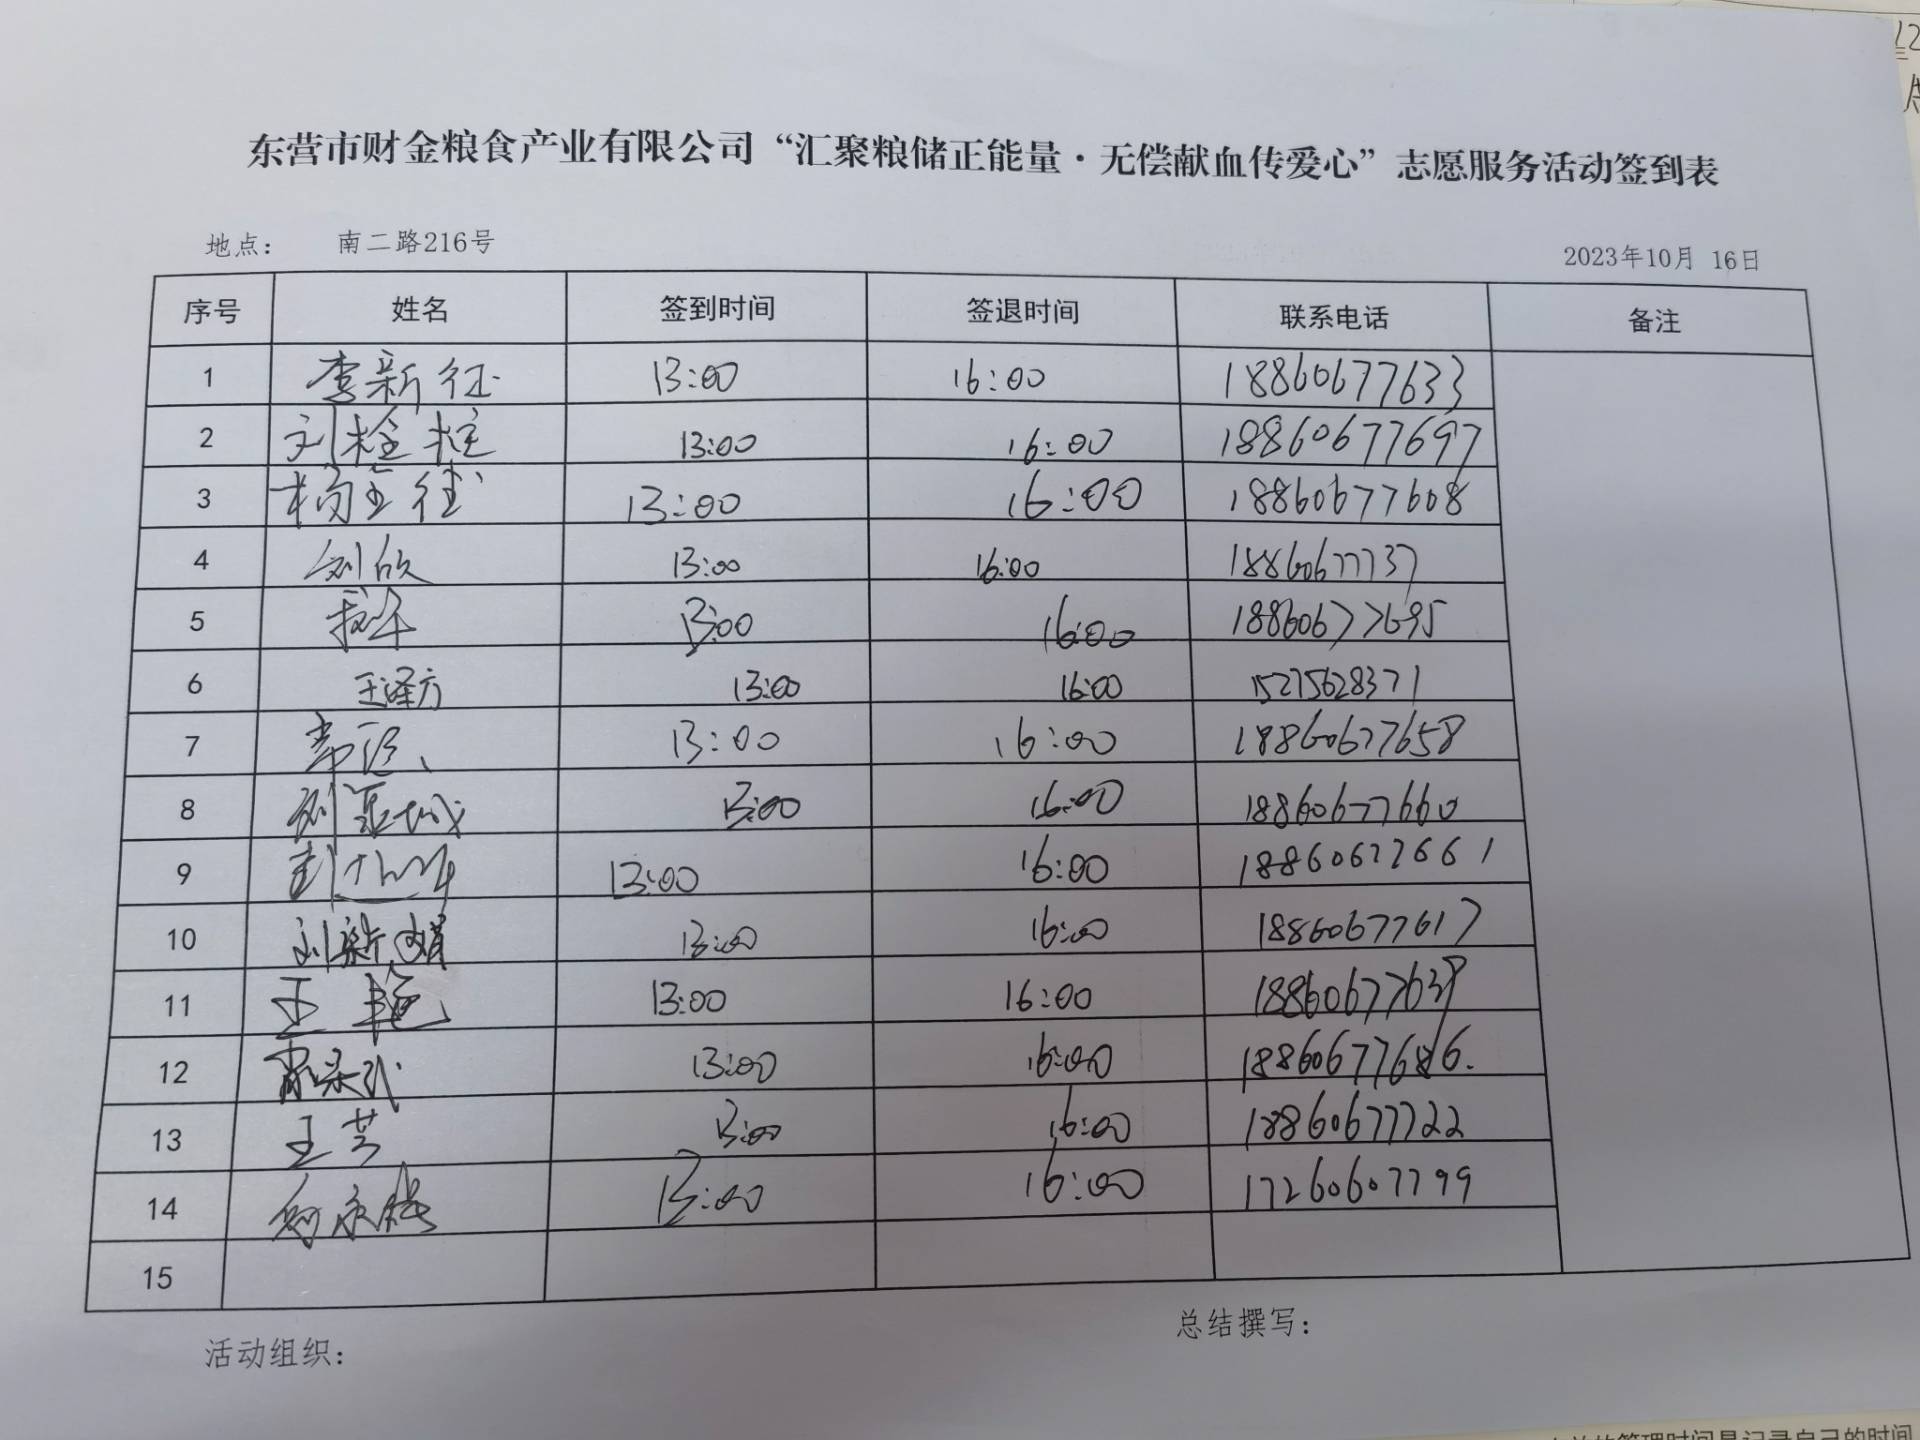 东营市财金粮食产业有限公司“汇聚粮储正能量·无偿献血传爱心”志愿服务活动签到表
地点： 南二路216号 2023年10月 16日
序号 姓名 签到时间 签退时间 联系电话 备注
1 李新征 13:00 16:00 18860677633
2 刘栓柱 13:00 16:00 18860677697
3 13:00 16:00 18860677608
4 刘欣 13:00 16:00 18860677737
5 13:00 16:00 18860677695
6 王泽方 13:00 16:00 15275628371
7 13:00 16:00 18860677658
8 13:00 16:00 18860677660
9 13:00 16:00 18860677661
10 刘新娟 13:00 16:00 18860677617
11 王艳 13:00 16:00
12 13:00 16:00
13 王芸 13:00 16:00 18860677722
14 13:00 16:00 17260607799
15
活动组织： 总结撰写：